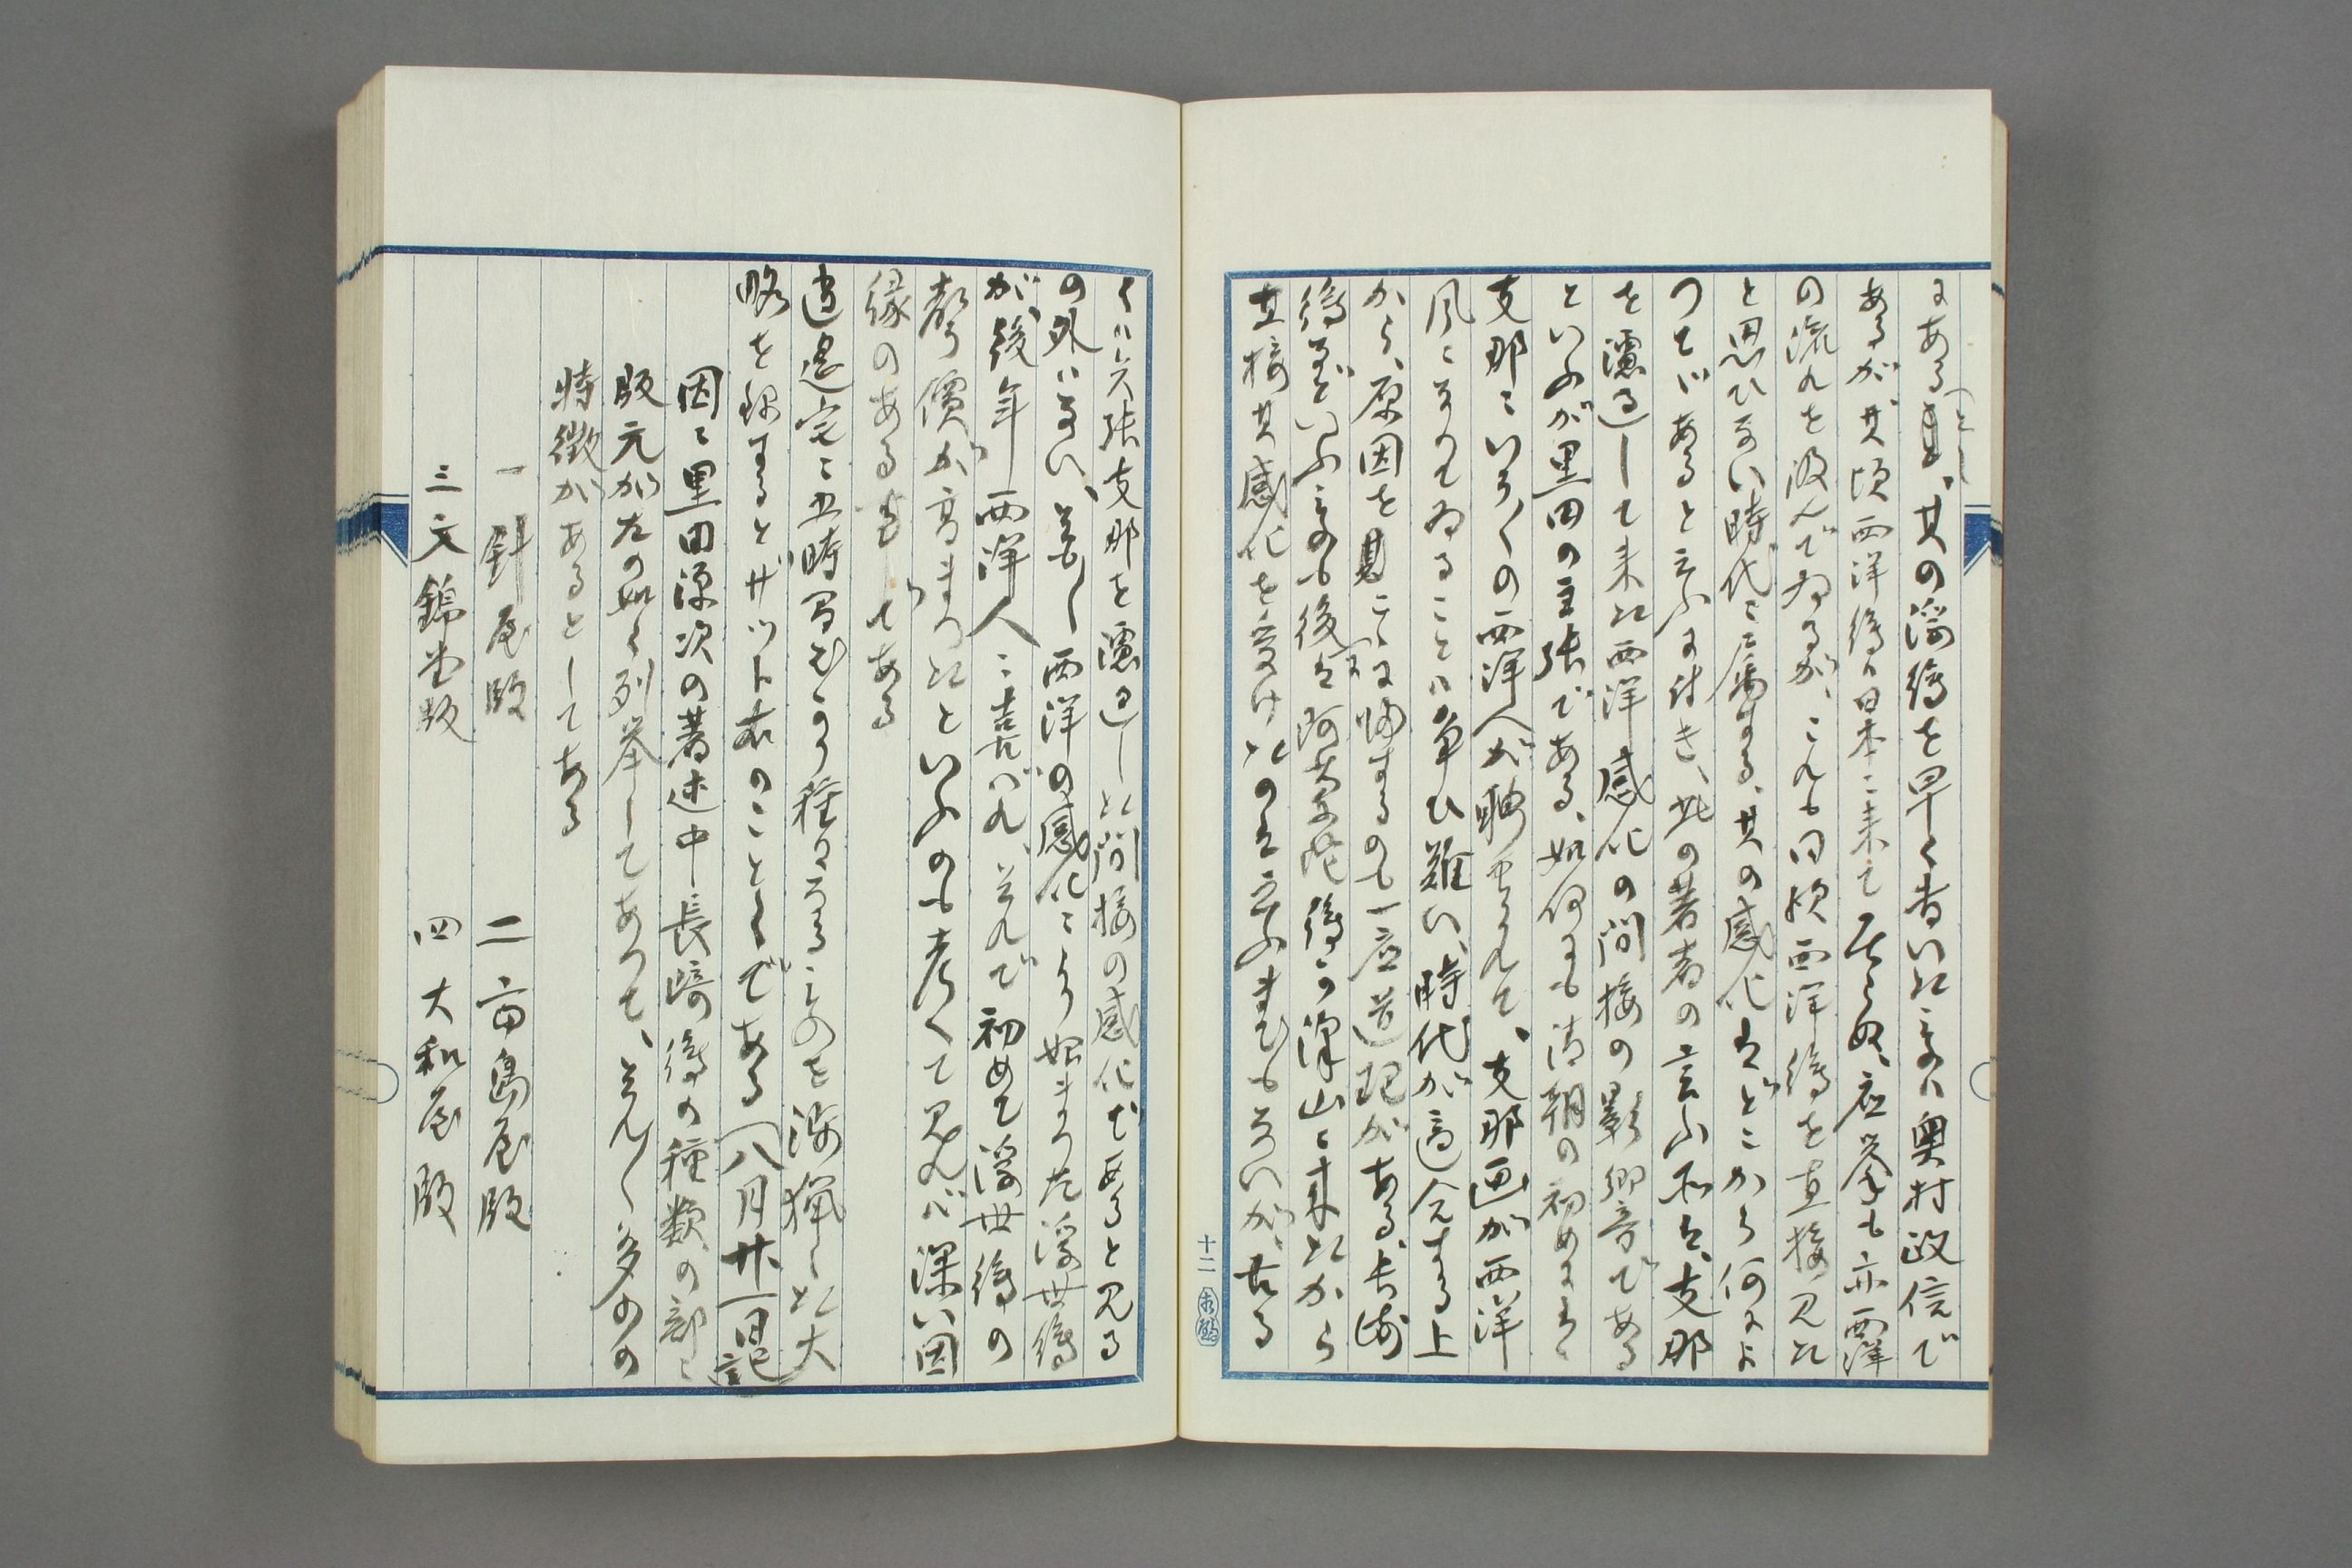 にある、其の浮絵を早く書いた元祖は奥村政信で
あるが其頃西洋絵は日本に来て居らぬ、応挙も亦西洋
の流れを汲んでゐるが、これも日頃西洋絵を直接見た
と思ひない時代に属する、其の感化はどこから何によ
つてゞあると云ふに付き、此の著者の言ふ所は、支那
を濾過して来た西洋感化の間接の影響である
といふが黒田の主張である、如何にも清朝の初めには
支那にいろ〱の西洋人が聘せられて、支那画が西洋
風になりてゐることは争ひ難い、時代が適合する上
から、原因をこゝに帰するのも一応道理がある、長崎
絵といふものも後は阿蘭陀絵が沢山に来たから
直接其感化を受けたのは云ふまでもないが、古る
十二
くは矢張支那を濾過した間接の感化であると見る
の外はない、若し西洋の感化により始まつた浮世絵
が後年西洋人に喜ばれ、それで初めて浮世絵の
声価が高まつたといふのも考へて見れば深い因
縁のあるてある
逍遥宅に五時間ばかり種々なるものを渉猟した大
略を録するとザツト右のことくである(八月廿一日記
因に黒田源次の著述中長崎絵の種類の部に
版元が左の如く列挙してあつて、それ〱多少の
特徴があるとしてある
一 針屋版 二 富島屋版
三 文錦堂版 四 大和屋版